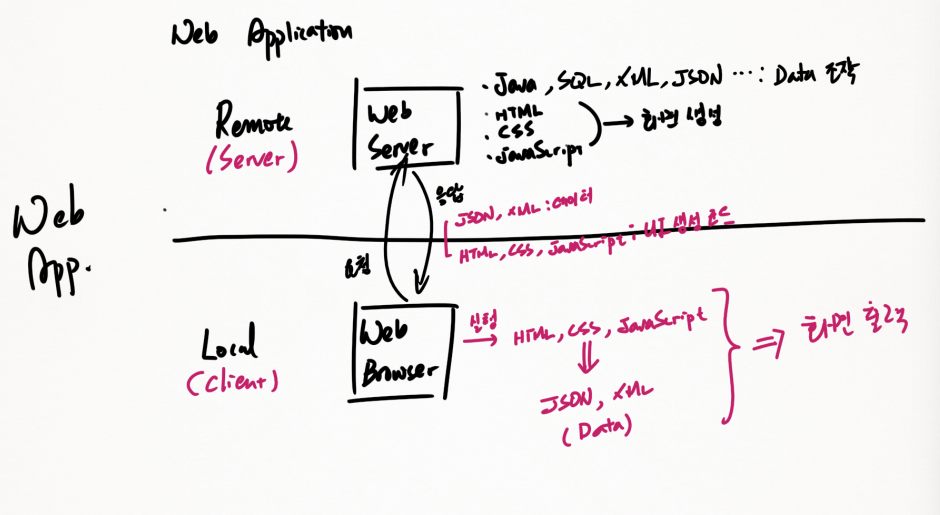 Web Application
Remote
(Server)
Web
Server
· Java, SQL, XML, JSON ... : Data 조작
· HTML
· CSS
· JavaScript
→ 화면 생성
응답
JSON, XML : 데이터
HTML, CSS, JavaScript : UI 생성 코드
Web
App.
요청
Local
(Client)
Web
Browser
실행
→ HTML, CSS, JavaScript
⇓
JSON, XML
(Data)
⇒ 화면 출력